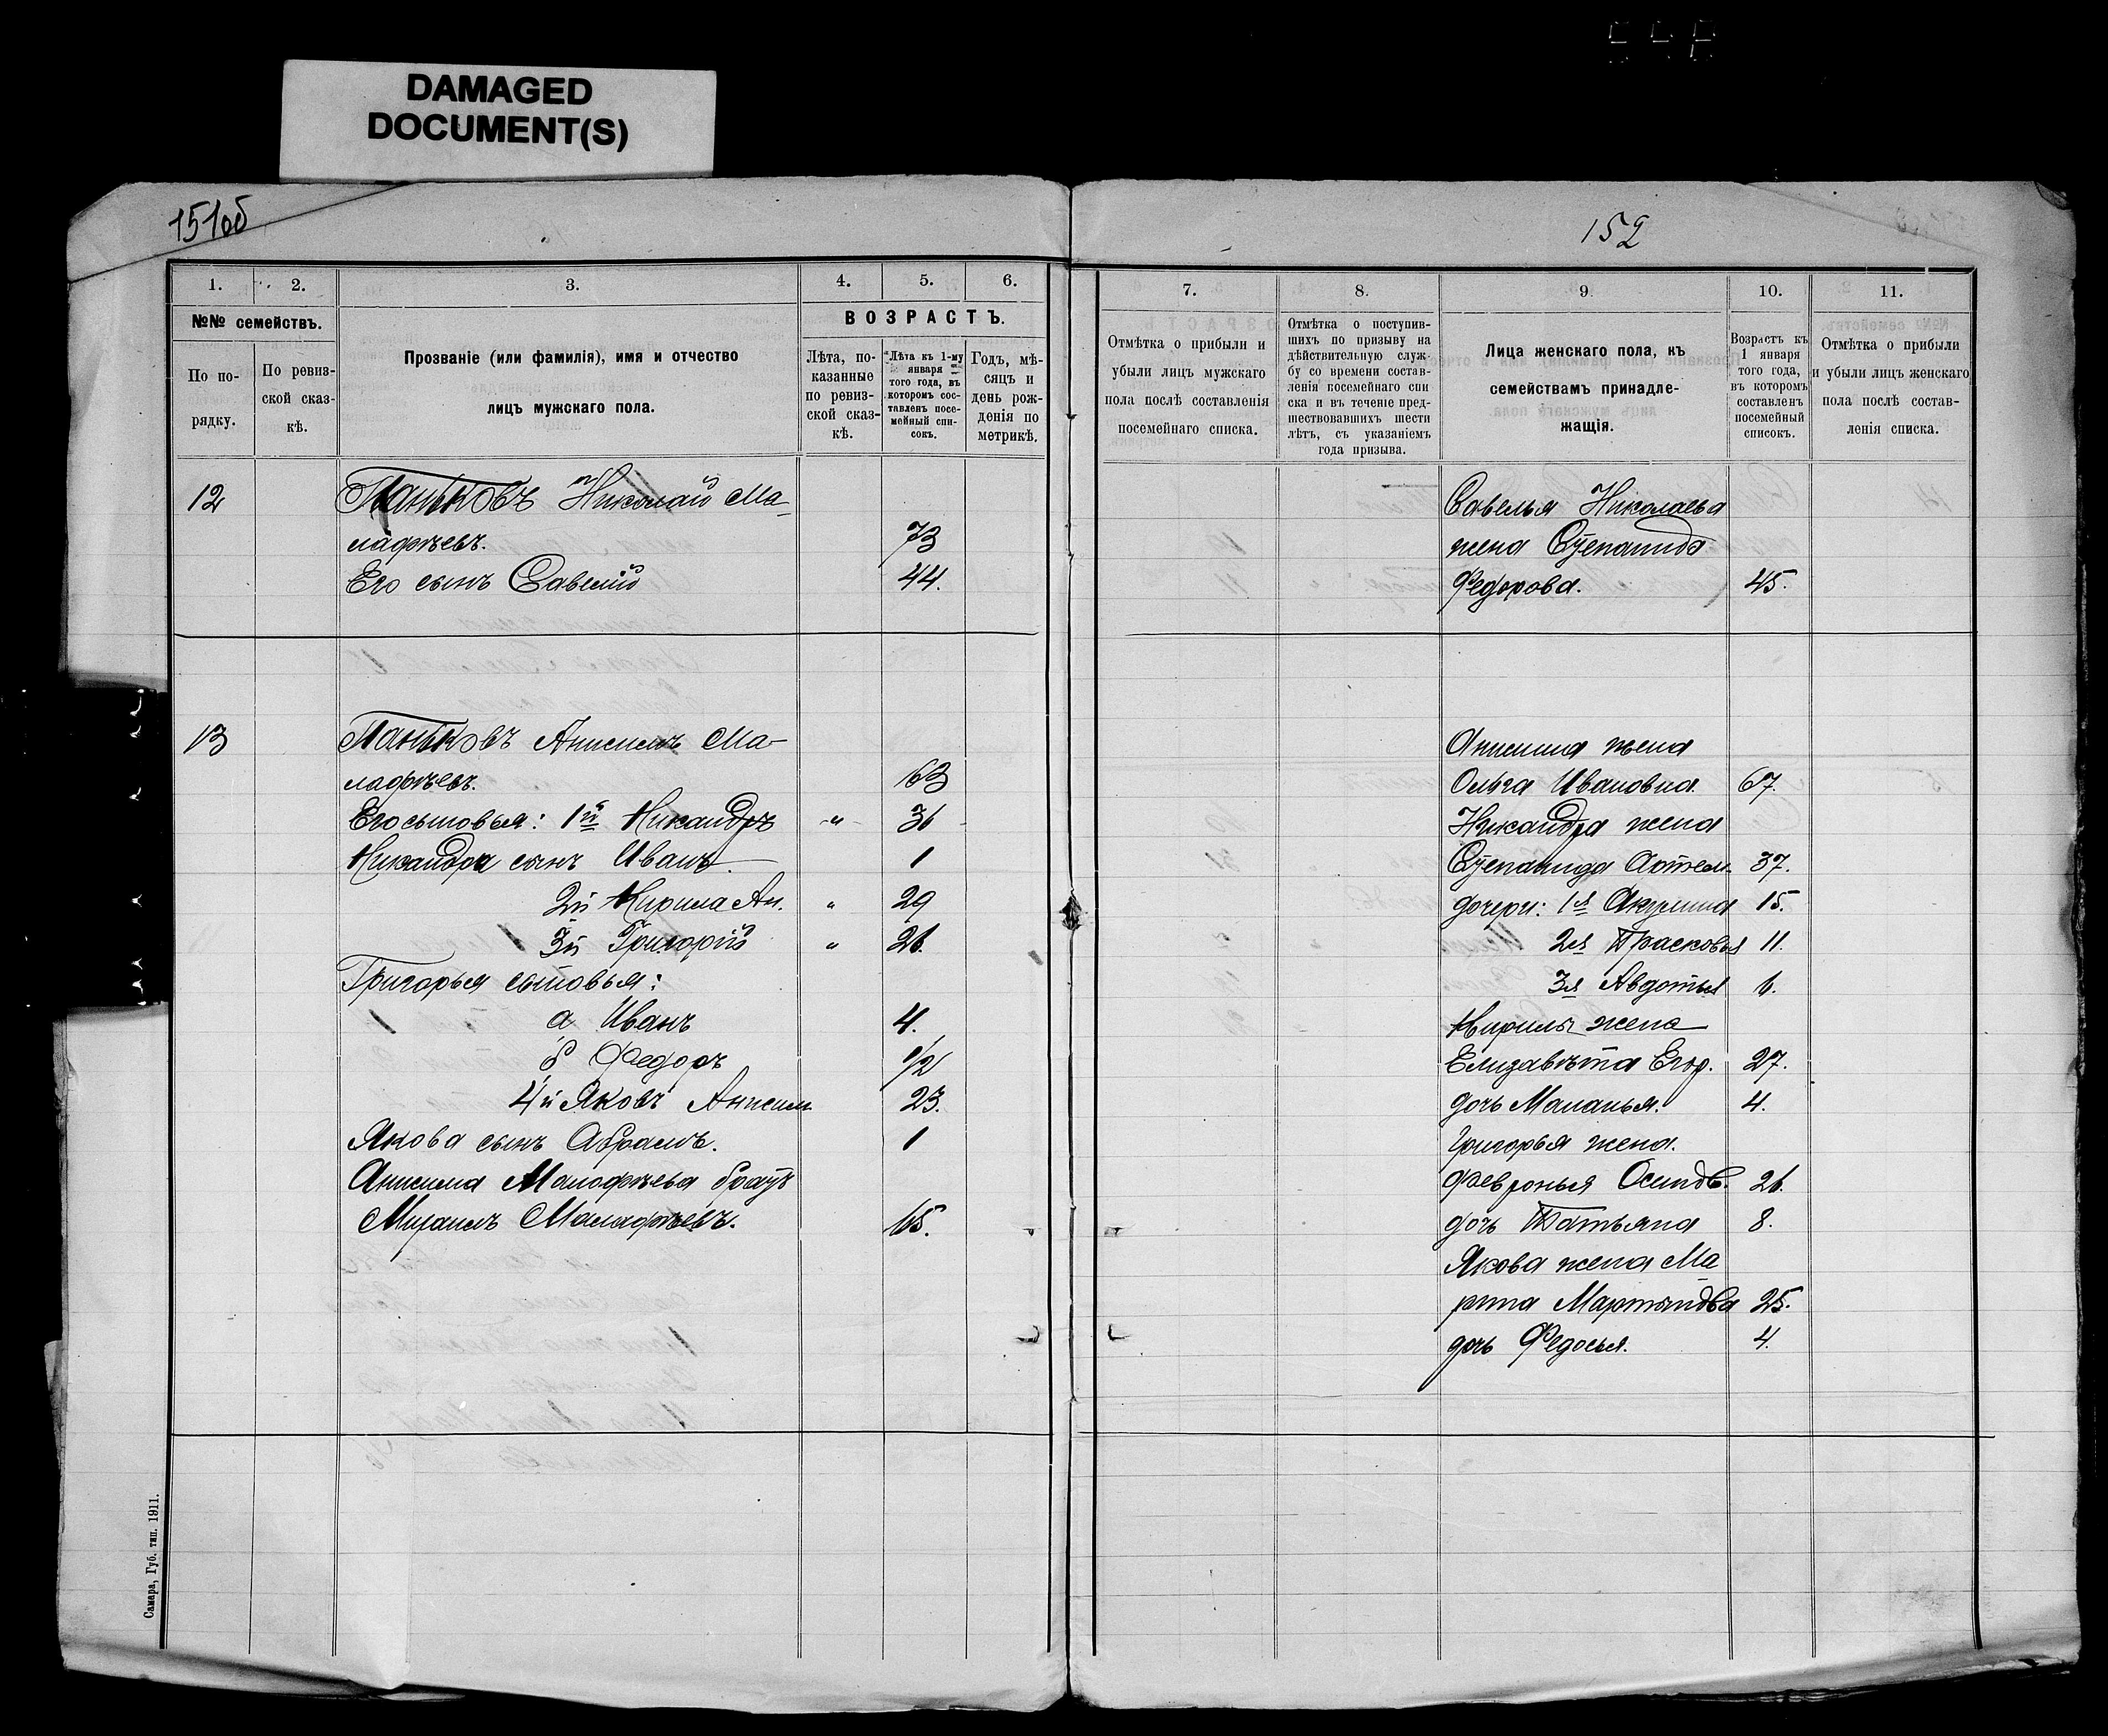 DAMAGED
DOCUMENT(S)
151об
1. 2. 3. 4. 5. 6.
№№ семействъ.
ВОЗРАСТЪ.
По по-
рядку.
По ревиз-
ской сказ-
кѣ.
Прозваніе (или фамилія), имя и отчество
лицъ мужскаго пола.
Лѣта, по-
казанные
по ревиз-
ской сказ-
кѣ.
Лѣта къ 1-му
января
того года, въ
которомъ сос-
тавленъ посе-
мейный спи-
сокъ.
Годъ, мѣ-
сяцъ и
день рож-
денія по
метрикѣ.
12 Паньковъ Николай Ма-
лафѣевъ. 73
Его сынъ Савелій 44.
13 Паньковъ Анисимъ Ма-
лафѣевъ. 63
Его сыновья: 1й Никандръ -"- 36
Никандра сынъ Иванъ. 1
2й Кирила Ан. " 29
3й Григорій " 26.
Григорья сыновья:
а Иванъ 4.
б Федоръ 1/2
4й Яковъ Анисим. 23.
Якова сынъ Абрамъ. 1
Анисима Малофѣева братъ
Михаилъ Малафѣевъ. 65.
Самара, Губ. тип. 1911.
152
7. 8. 9. 10. 11.
Отмѣтка о прибыли и
убыли лицъ мужскаго
пола послѣ составленія
посемейнаго списка.
Отмѣтка о поступив-
шихъ по призыву на
дѣйствительную служ-
бу со времени состав-
ленія посемейнаго спи
ска и въ теченіе пред-
шествовавшихъ шести
лѣтъ, съ указаніемъ
года призыва.
Лица женскаго пола, къ
семействамъ принадле-
жащія.
Возрастъ къ
1 января
того года,
въ которомъ
составленъ
посемейный
списокъ.
Отмѣтка о прибыли
и убыли лицъ женскаго
пола послѣ состав-
ленія списка.
Савелья Николаева
жена Степанида
Федорова. 45.
Анисима жена
Ольга Ивановна 67.
Никандра жена
Степанида Артем. 37.
дочери: 1я Акулина 15.
2я Прасковья 11.
3я Авдотья 6.
Кирилы жена
Елизавѣта Егор. 27.
дочь Маланья. 4.
Григорья жена.
Февронья Осипов. 26.
дочь Татьяна 8.
Якова жена Ма
рина Мартынова 25.
дочь Федосья. 4.